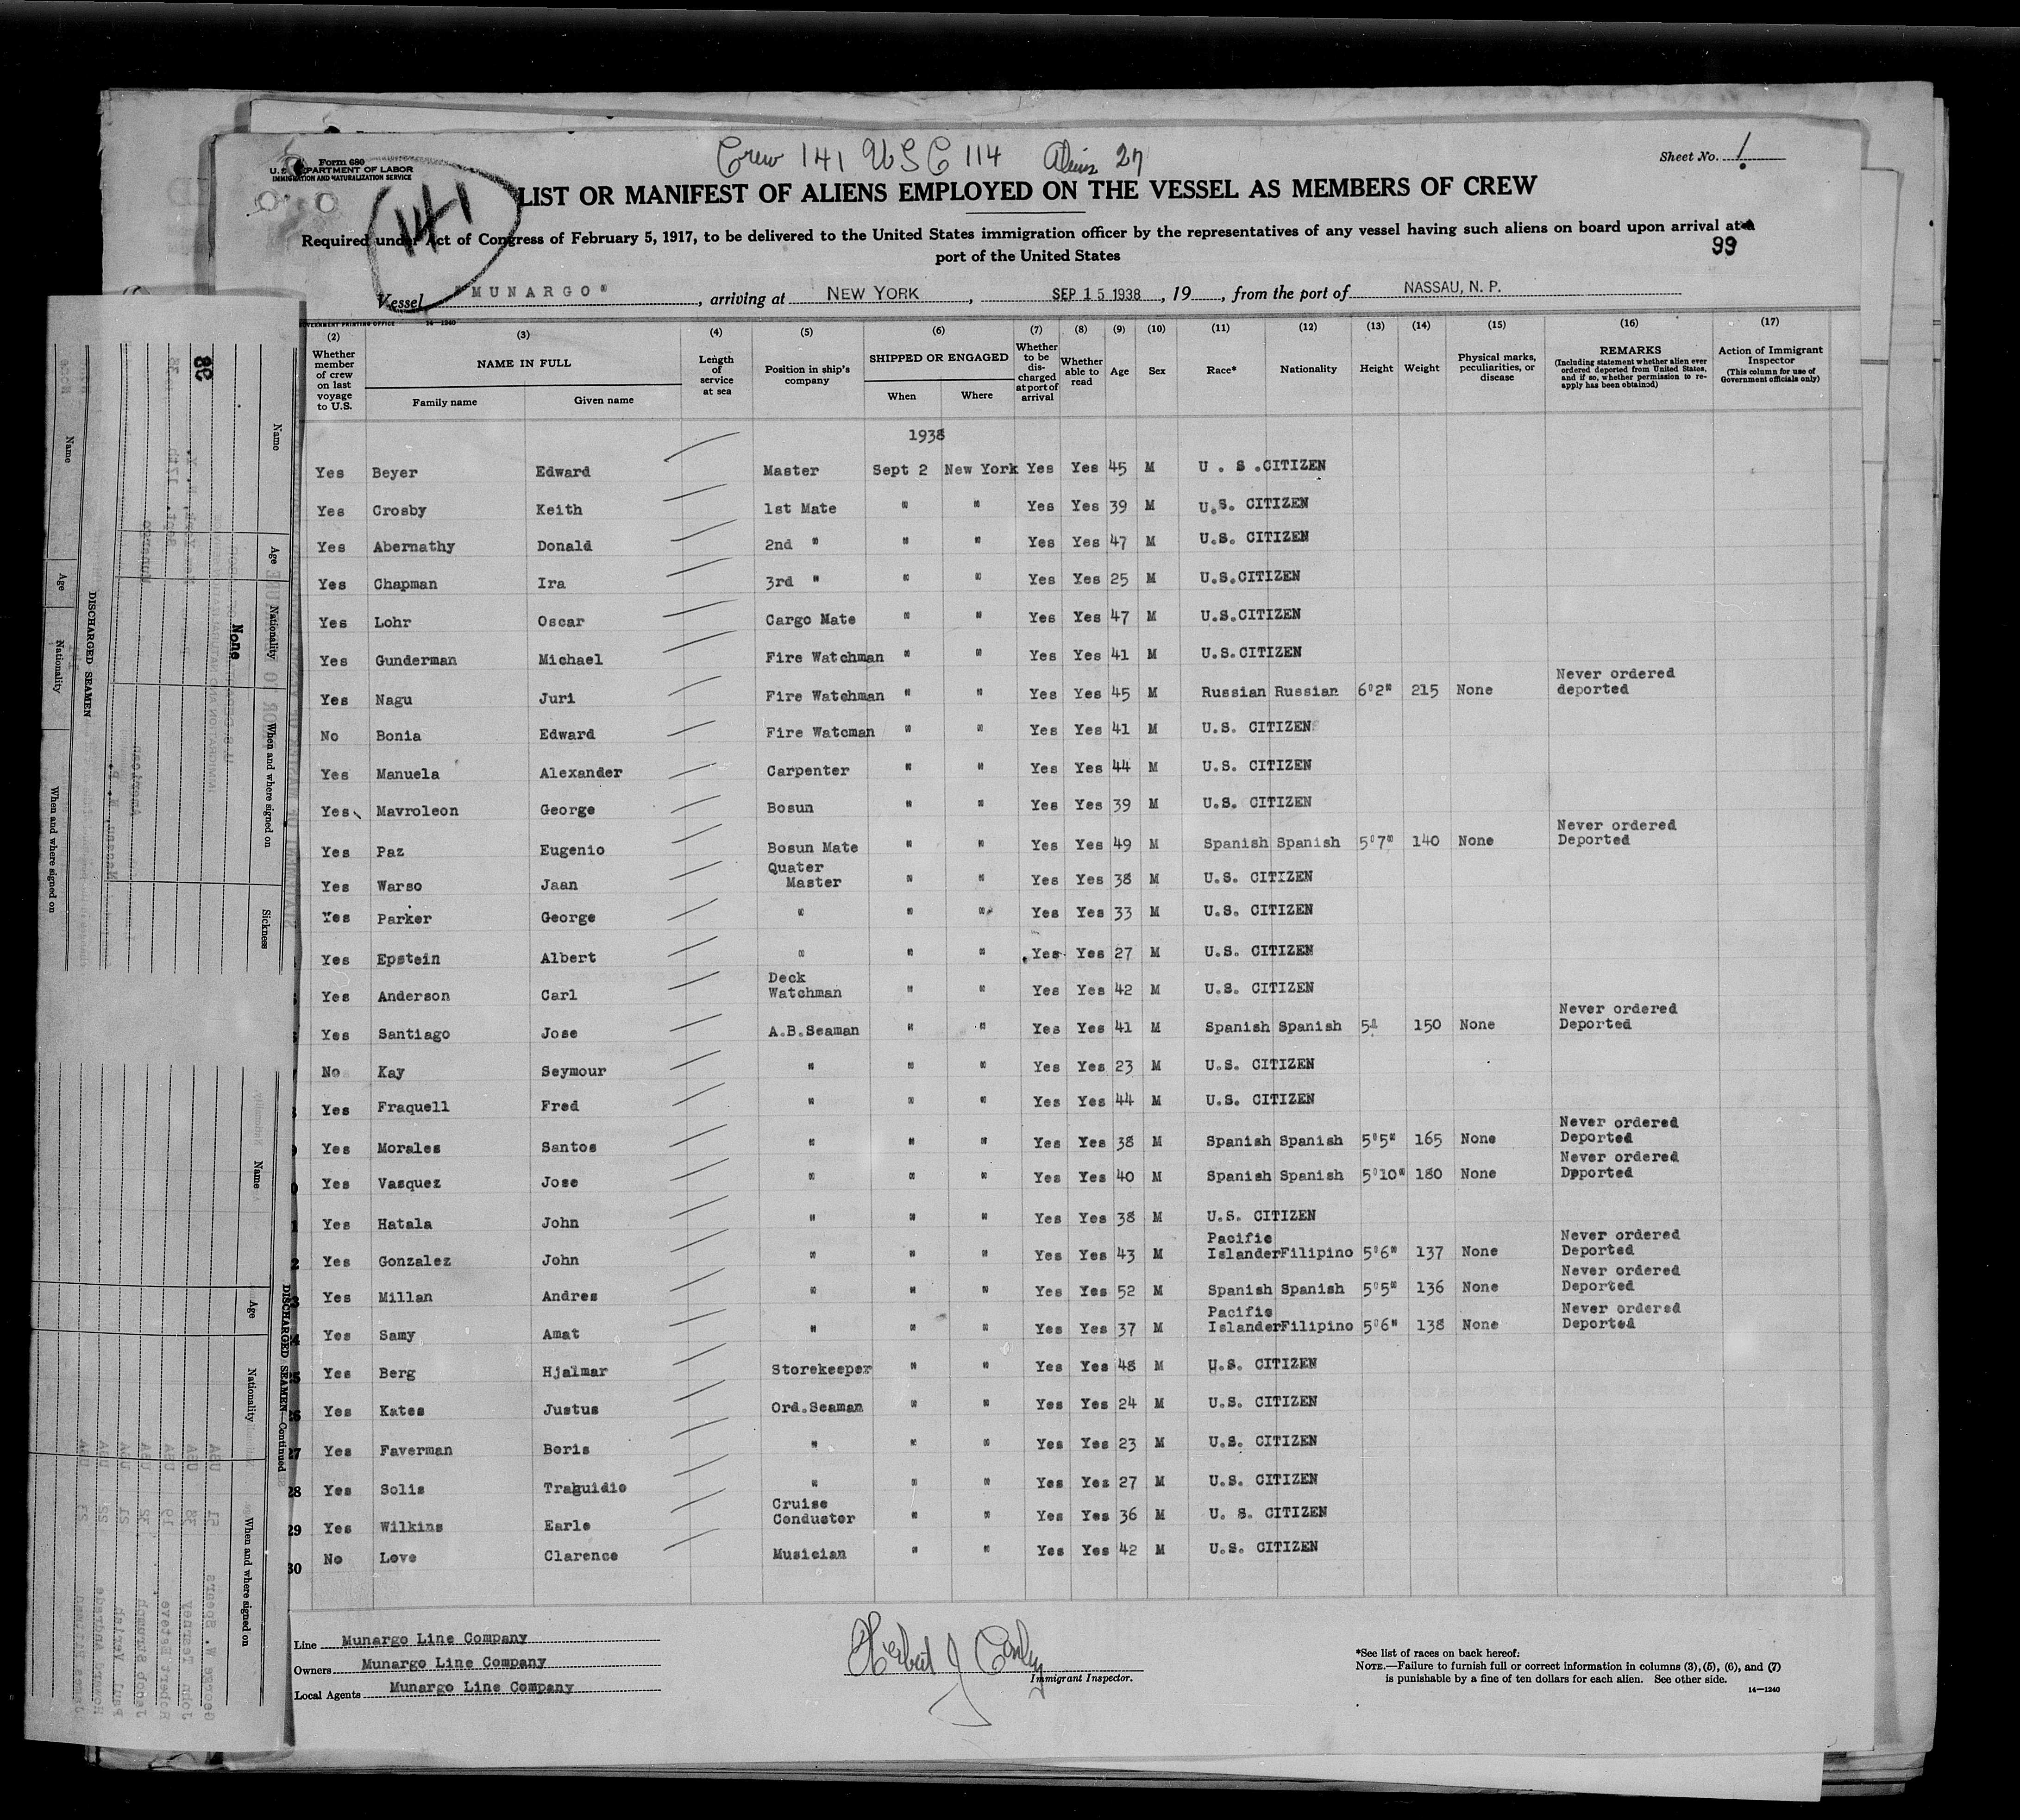 Crew 141 USC 114 Aliens 27
Sheet No. 1
Form 680
U.S. DEPARTMENT OF LABOR
IMMIGRATION AND NATURALIZATION SERVICE
141
LIST OR MANIFEST OF ALIENS EMPLOYED ON THE VESSEL AS MEMBERS OF CREW
Required under Act of Congress of February 5, 1917, to be delivered to the United States immigration officer by the representatives of any vessel having such aliens on board upon arrival at a
port of the United States
99
Vessel "MUNARGO", arriving at NEW YORK, SEP 15 1938, 19, from the port of NASSAU, N. P.
GOVERNMENT PRINTING OFFICE 14—1240
(2) (3) (4) (5) (6) (7) (8) (9) (10) (11) (12) (13) (14) (15) (16) (17)
Whether member of crew on last voyage to U.S. NAME IN FULL Family name Given name Length of service at sea Position in ship's company SHIPPED OR ENGAGED When Where Whether to be discharged at port of arrival Whether able to read Age Sex Race* Nationality Height Weight Physical marks, peculiarities, or disease REMARKS (Including statement whether alien ever ordered deported from United States, and if so, whether permission to reapply has been obtained) Action of Immigrant Inspector (This column for use of Government officials only)
1938
Yes Beyer Edward Master Sept 2 New York Yes Yes 45 M U . S .CITIZEN
Yes Crosby Keith 1st Mate " " Yes Yes 39 M U.S. CITIZEN
Yes Abernathy Donald 2nd " " " Yes Yes 47 M U.S. CITIZEN
Yes Chapman Ira 3rd " " " Yes Yes 25 M U.S.CITIZEN
Yes Lohr Oscar Cargo Mate " " Yes Yes 47 M U.S.CITIZEN
Yes Gunderman Michael Fire Watchman " " Yes Yes 41 M U.S.CITIZEN
Yes Nagu Juri Fire Watchman " " Yes Yes 45 M Russian Russian 6'2" 215 None Never ordered deported
No Bonia Edward Fire Watcman " " Yes Yes 41 M U.S. CITIZEN
Yes Manuela Alexander Carpenter " " Yes Yes 44 M U.S. CITIZEN
Yes Mavroleon George Bosun " " Yes Yes 39 M U.S. CITIZEN
Yes Paz Eugenio Bosun Mate " " Yes Yes 49 M Spanish Spanish 5'7" 140 None Never ordered Deported
Yes Warso Jaan Quater Master " " Yes Yes 38 M U.S. CITIZEN
Yes Parker George " " " Yes Yes 33 M U.S. CITIZEN
Yes Epstein Albert " " " Yes Yes 27 M U.S. CITIZEN
Yes Anderson Carl Deck Watchman " " Yes Yes 42 M U.S. CITIZEN
Yes Santiago Jose A.B.Seaman " " Yes Yes 41 M Spanish Spanish 5' 150 None Never ordered Deported
No Kay Seymour " " " Yes Yes 23 M U.S. CITIZEN
Yes Fraquell Fred " " " Yes Yes 44 M U.S. CITIZEN
Yes Morales Santos " " " Yes Yes 38 M Spanish Spanish 5'5" 165 None Never ordered Deported
Yes Vasquez Jose " " " Yes Yes 40 M Spanish Spanish 5'10" 180 None Never ordered Dpported
Yes Hatala John " " " Yes Yes 38 M U.S. CITIZEN
2 Yes Gonzalez John " " " Yes Yes 43 M Pacific Islander Filipino 5'6" 137 None Never ordered Deported
3 Yes Millan Andres " " " Yes Yes 52 M Spanish Spanish 5'5" 136 None Never ordered Deported
4 Yes Samy Amat " " " Yes Yes 37 M Pacific Islander Filipino 5'6" 138 None Never ordered Deported
5 Yes Berg Hjalmar Storekeeper " " Yes Yes 48 M U.S. CITIZEN
26 Yes Kates Justus Ord.Seaman " " Yes Yes 24 M U.S. CITIZEN
27 Yes Faverman Boris " " " Yes Yes 23 M U.S. CITIZEN
28 Yes Solis Traguidio " " " Yes Yes 27 M U.S. CITIZEN
29 Yes Wilkins Earle Cruise Conductor " " Yes Yes 36 M U. S. CITIZEN
30 No Love Clarence Musician " " Yes Yes 42 M U.S. CITIZEN
Line Munargo Line Company
Owners Munargo Line Company
Local Agents Munargo Line Company
Immigrant Inspector.
*See list of races on back hereof.
NOTE.—Failure to furnish full or correct information in columns (3), (5), (6), and (7)
is punishable by a fine of ten dollars for each alien. See other side.
14—1240
89
None
Name Age Nationality When and where signed on Sickness
DISCHARGED SEAMEN
Name Age Nationality When and where signed on
DISCHARGED SEAMEN—Continued
Name Age Nationality When and where signed on